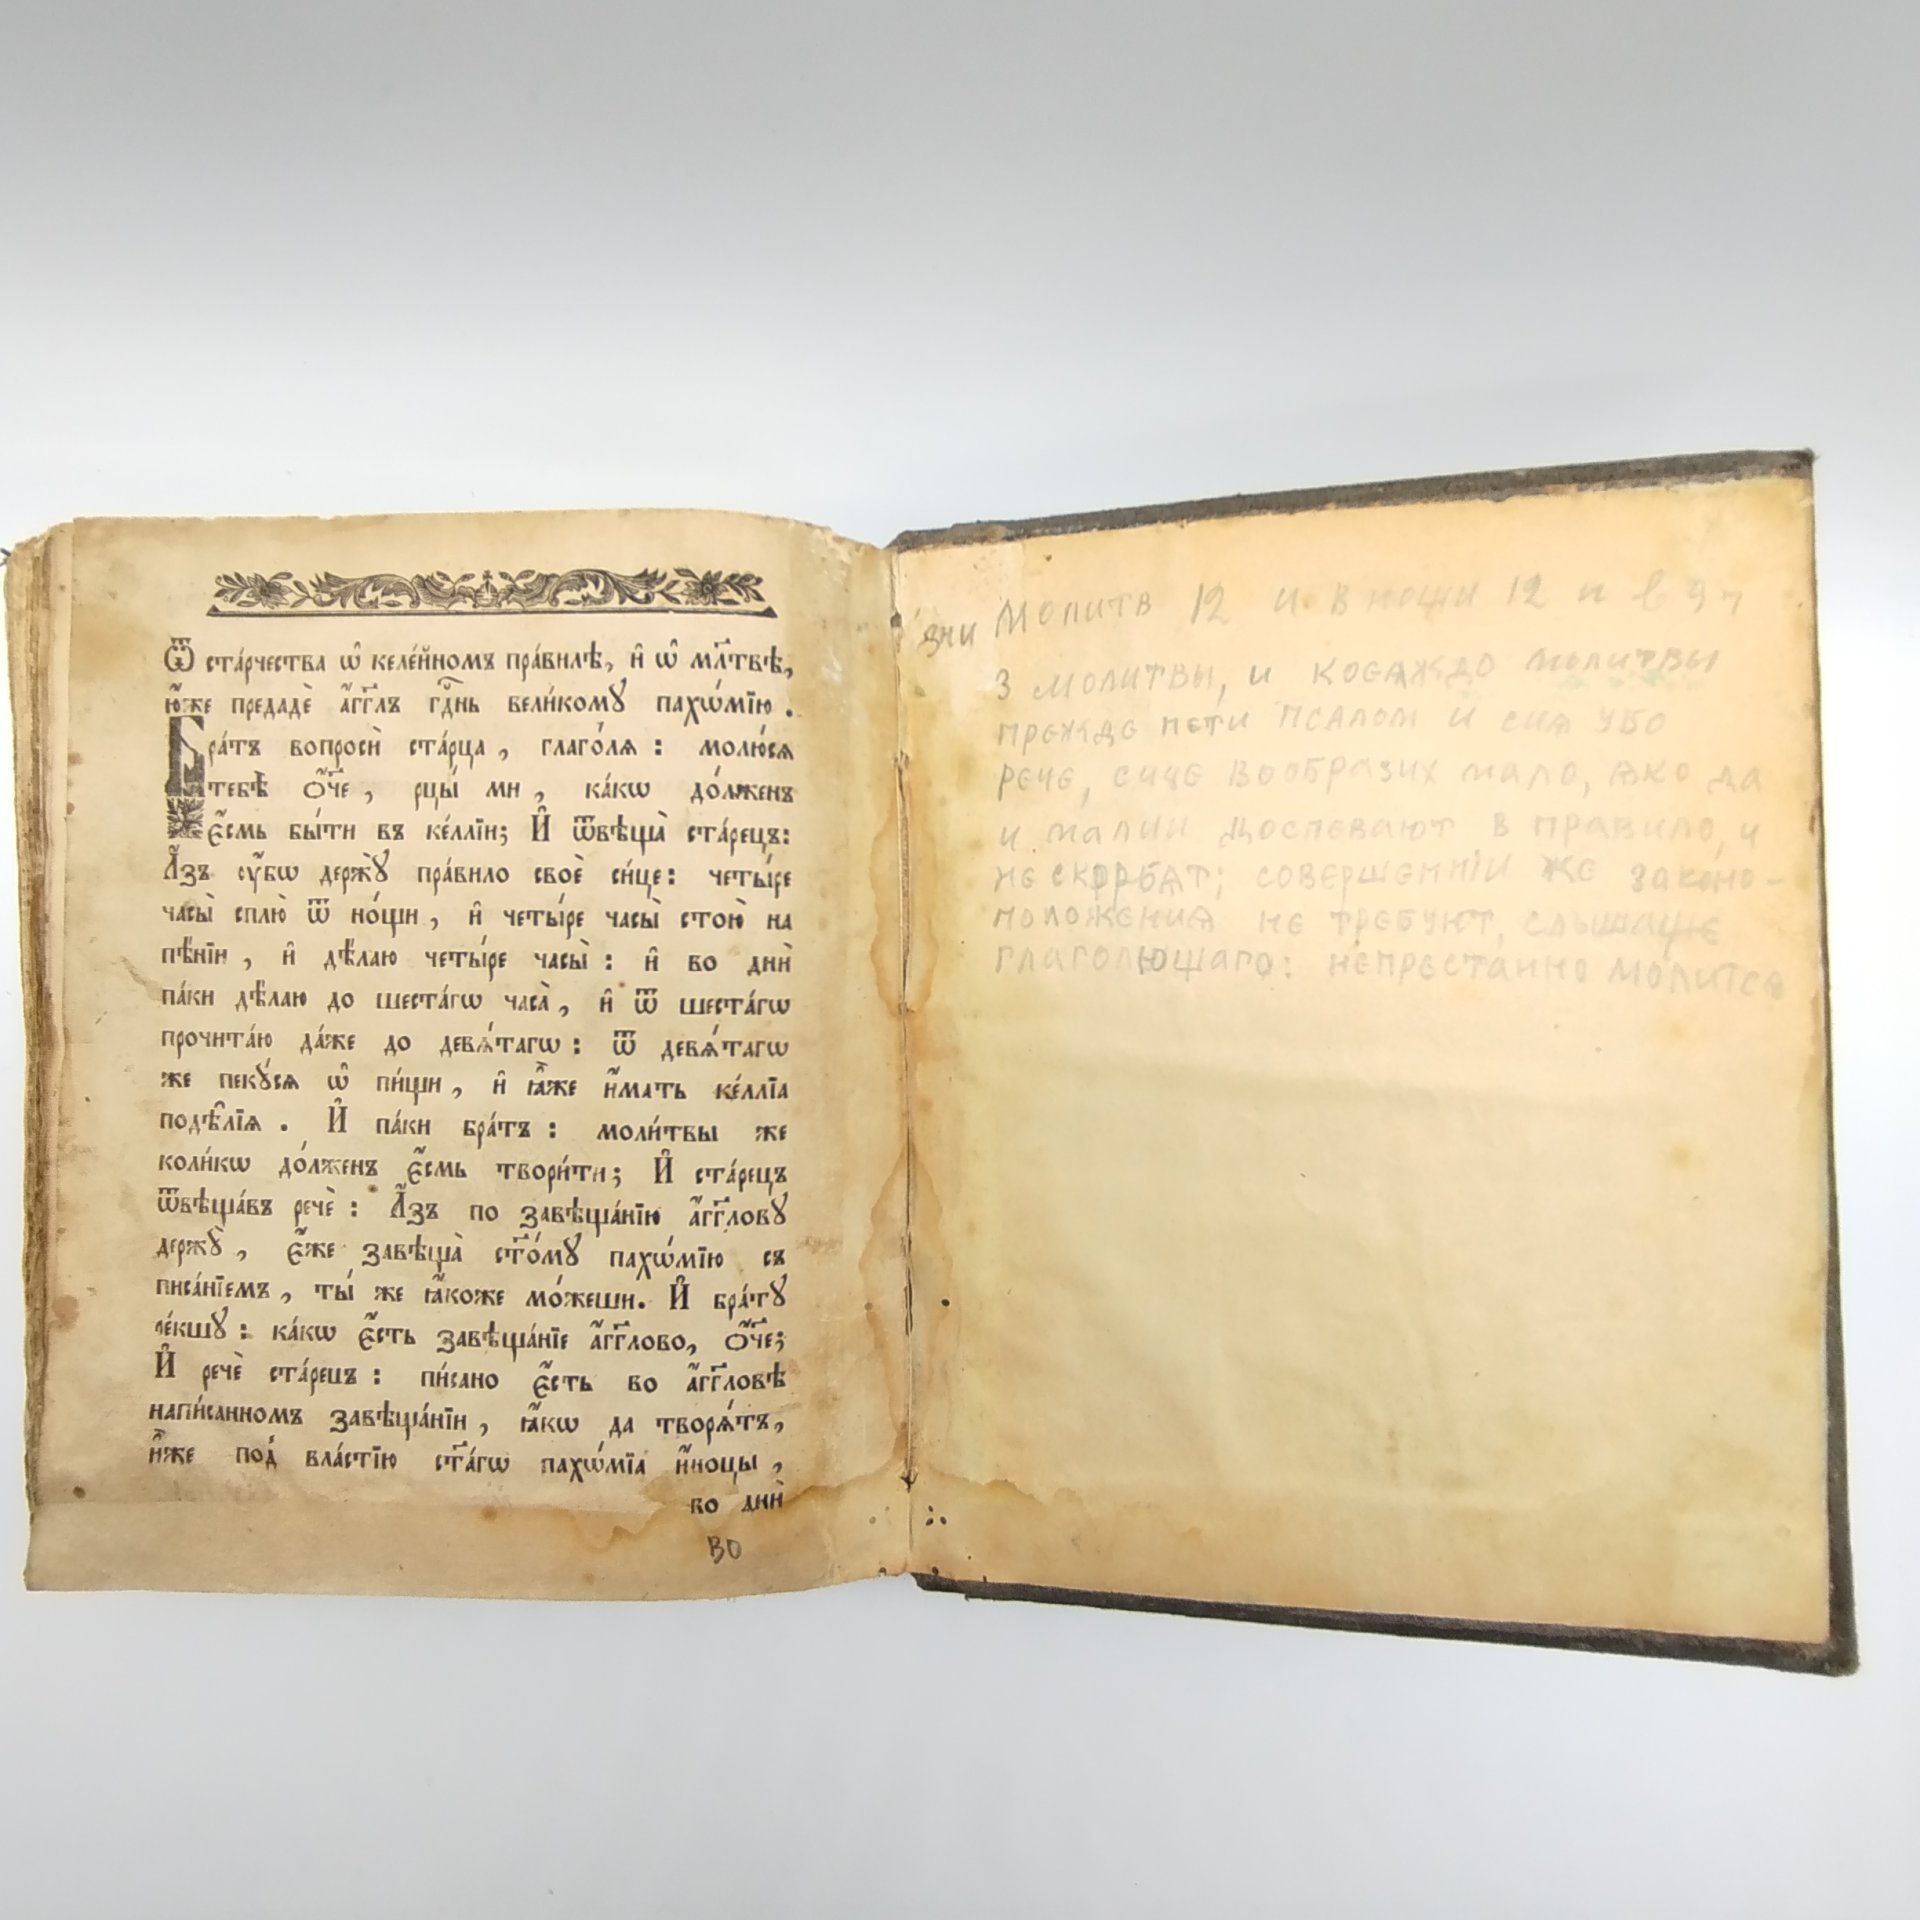 Ѿ ста́рчества ѡ҆ келе́йномъ пра́вилѣ, и҆ ѡ҆ мл҃твѣ,
ю҆́же предадѐ а҆́гг҃лъ гд҇нь вели́кому пахѡ́мїю.
Бра́тъ вопросѝ ста́рца, глаго́лѧ: молю́сѧ
тебѣ̀ ѻ҆́ч҃е, рцы́ ми, ка́кѡ до́лженъ
є҆́смь бы́ти въ ке́ллїи; И҆ ѿвѣщà ста́рецъ:
А҆́зъ ᲂу҆́бѡ держꙋ̀ пра́вило своѐ си́це: четы́ре
часы̀ сплю̀ ѿ но́щи, и҆ четы́ре часы̀ стою̀ на
пѣ́нїи, и҆ дѣ́лаю четы́ре часы̀: и҆ во днѝ
па́ки дѣ́лаю до шеста́гѡ часà, и҆ ѿ шеста́гѡ
прочита́ю да́же до девѧ́тагѡ: ѿ девѧ́тагѡ
же пекꙋ́сѧ ѡ҆ пи́щи, и҆ ꙗ҆́же и҆́мать ке́ллїа
подѣ́лїѧ. И҆ па́ки бра́тъ: моли́твы же
коли́кѡ до́лженъ є҆́смь твори́ти; И҆ ста́рецъ
ѿвѣща́въ речѐ: А҆́зъ по завѣща́нїю а҆́гг҃ловꙋ
держꙋ̀, є҆́же завѣщà ст҃о́мꙋ пахѡ́мїю съ
писа́нїемъ, ты́ же ꙗ҆́коже мо́жеши. И҆ бра́тꙋ
ре́кшꙋ: ка́кѡ є҆́сть завѣща́нїе а҆́гг҃лово, ѻ҆́ч҃е;
И҆ речѐ ста́рецъ: пи́сано є҆́сть во а҆́гг҃ловѣ
напи́санномъ завѣща́нїи, ꙗ҆́кѡ да творѧ́тъ,
и҆́же под̾ вла́стїю ст҃а́гѡ пахѡ́мїа и҆́ноцы,
во днѝ
во
зни молитв 12 и в нощи 12 и в 9 ч
3 молитвы, и коеѧждо молитвы
прежде пети псалом и сиѧ убо
рече, сице вообразих мало, ѧко да
и малии доспевают в правило, и
не скорбѧт; совершеннїи же законо-
положениѧ не требуют, слышаще
глаголющаго: непрестанно молитсѧ